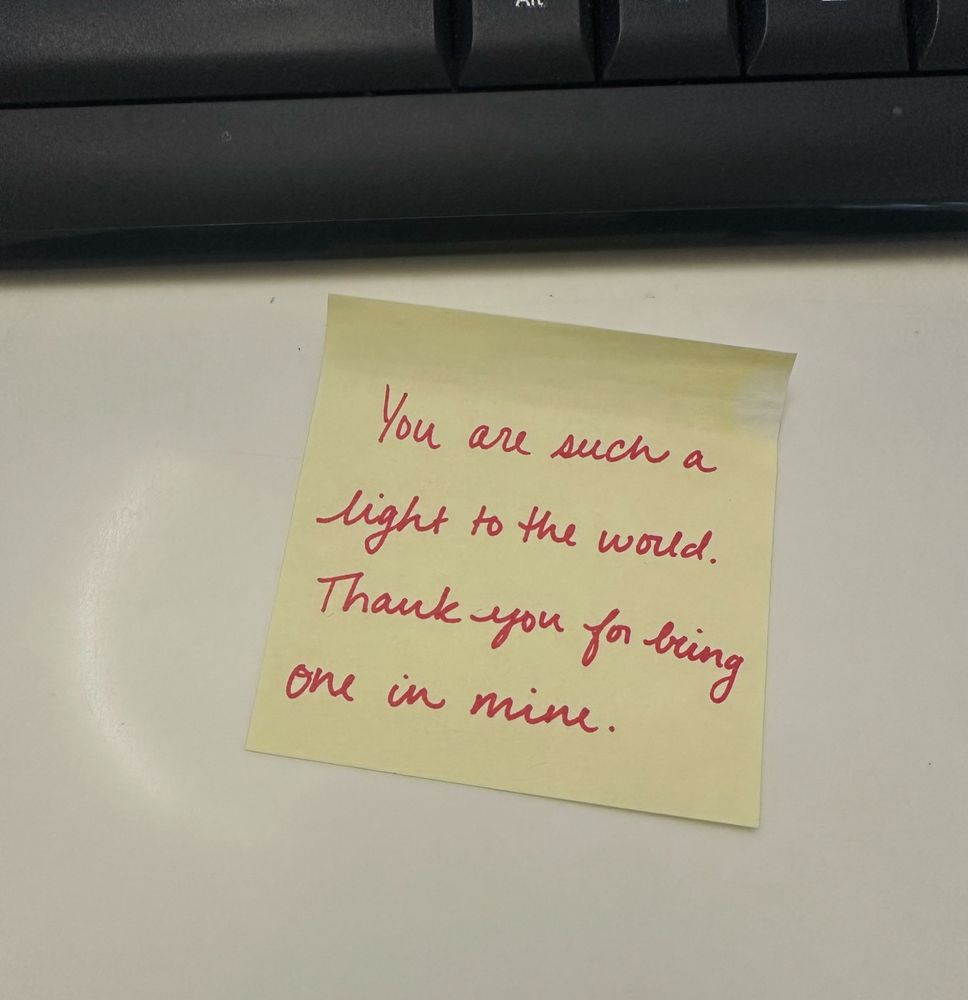 Alt
You are such a
light to the world.
Thank you for being
one in mine.